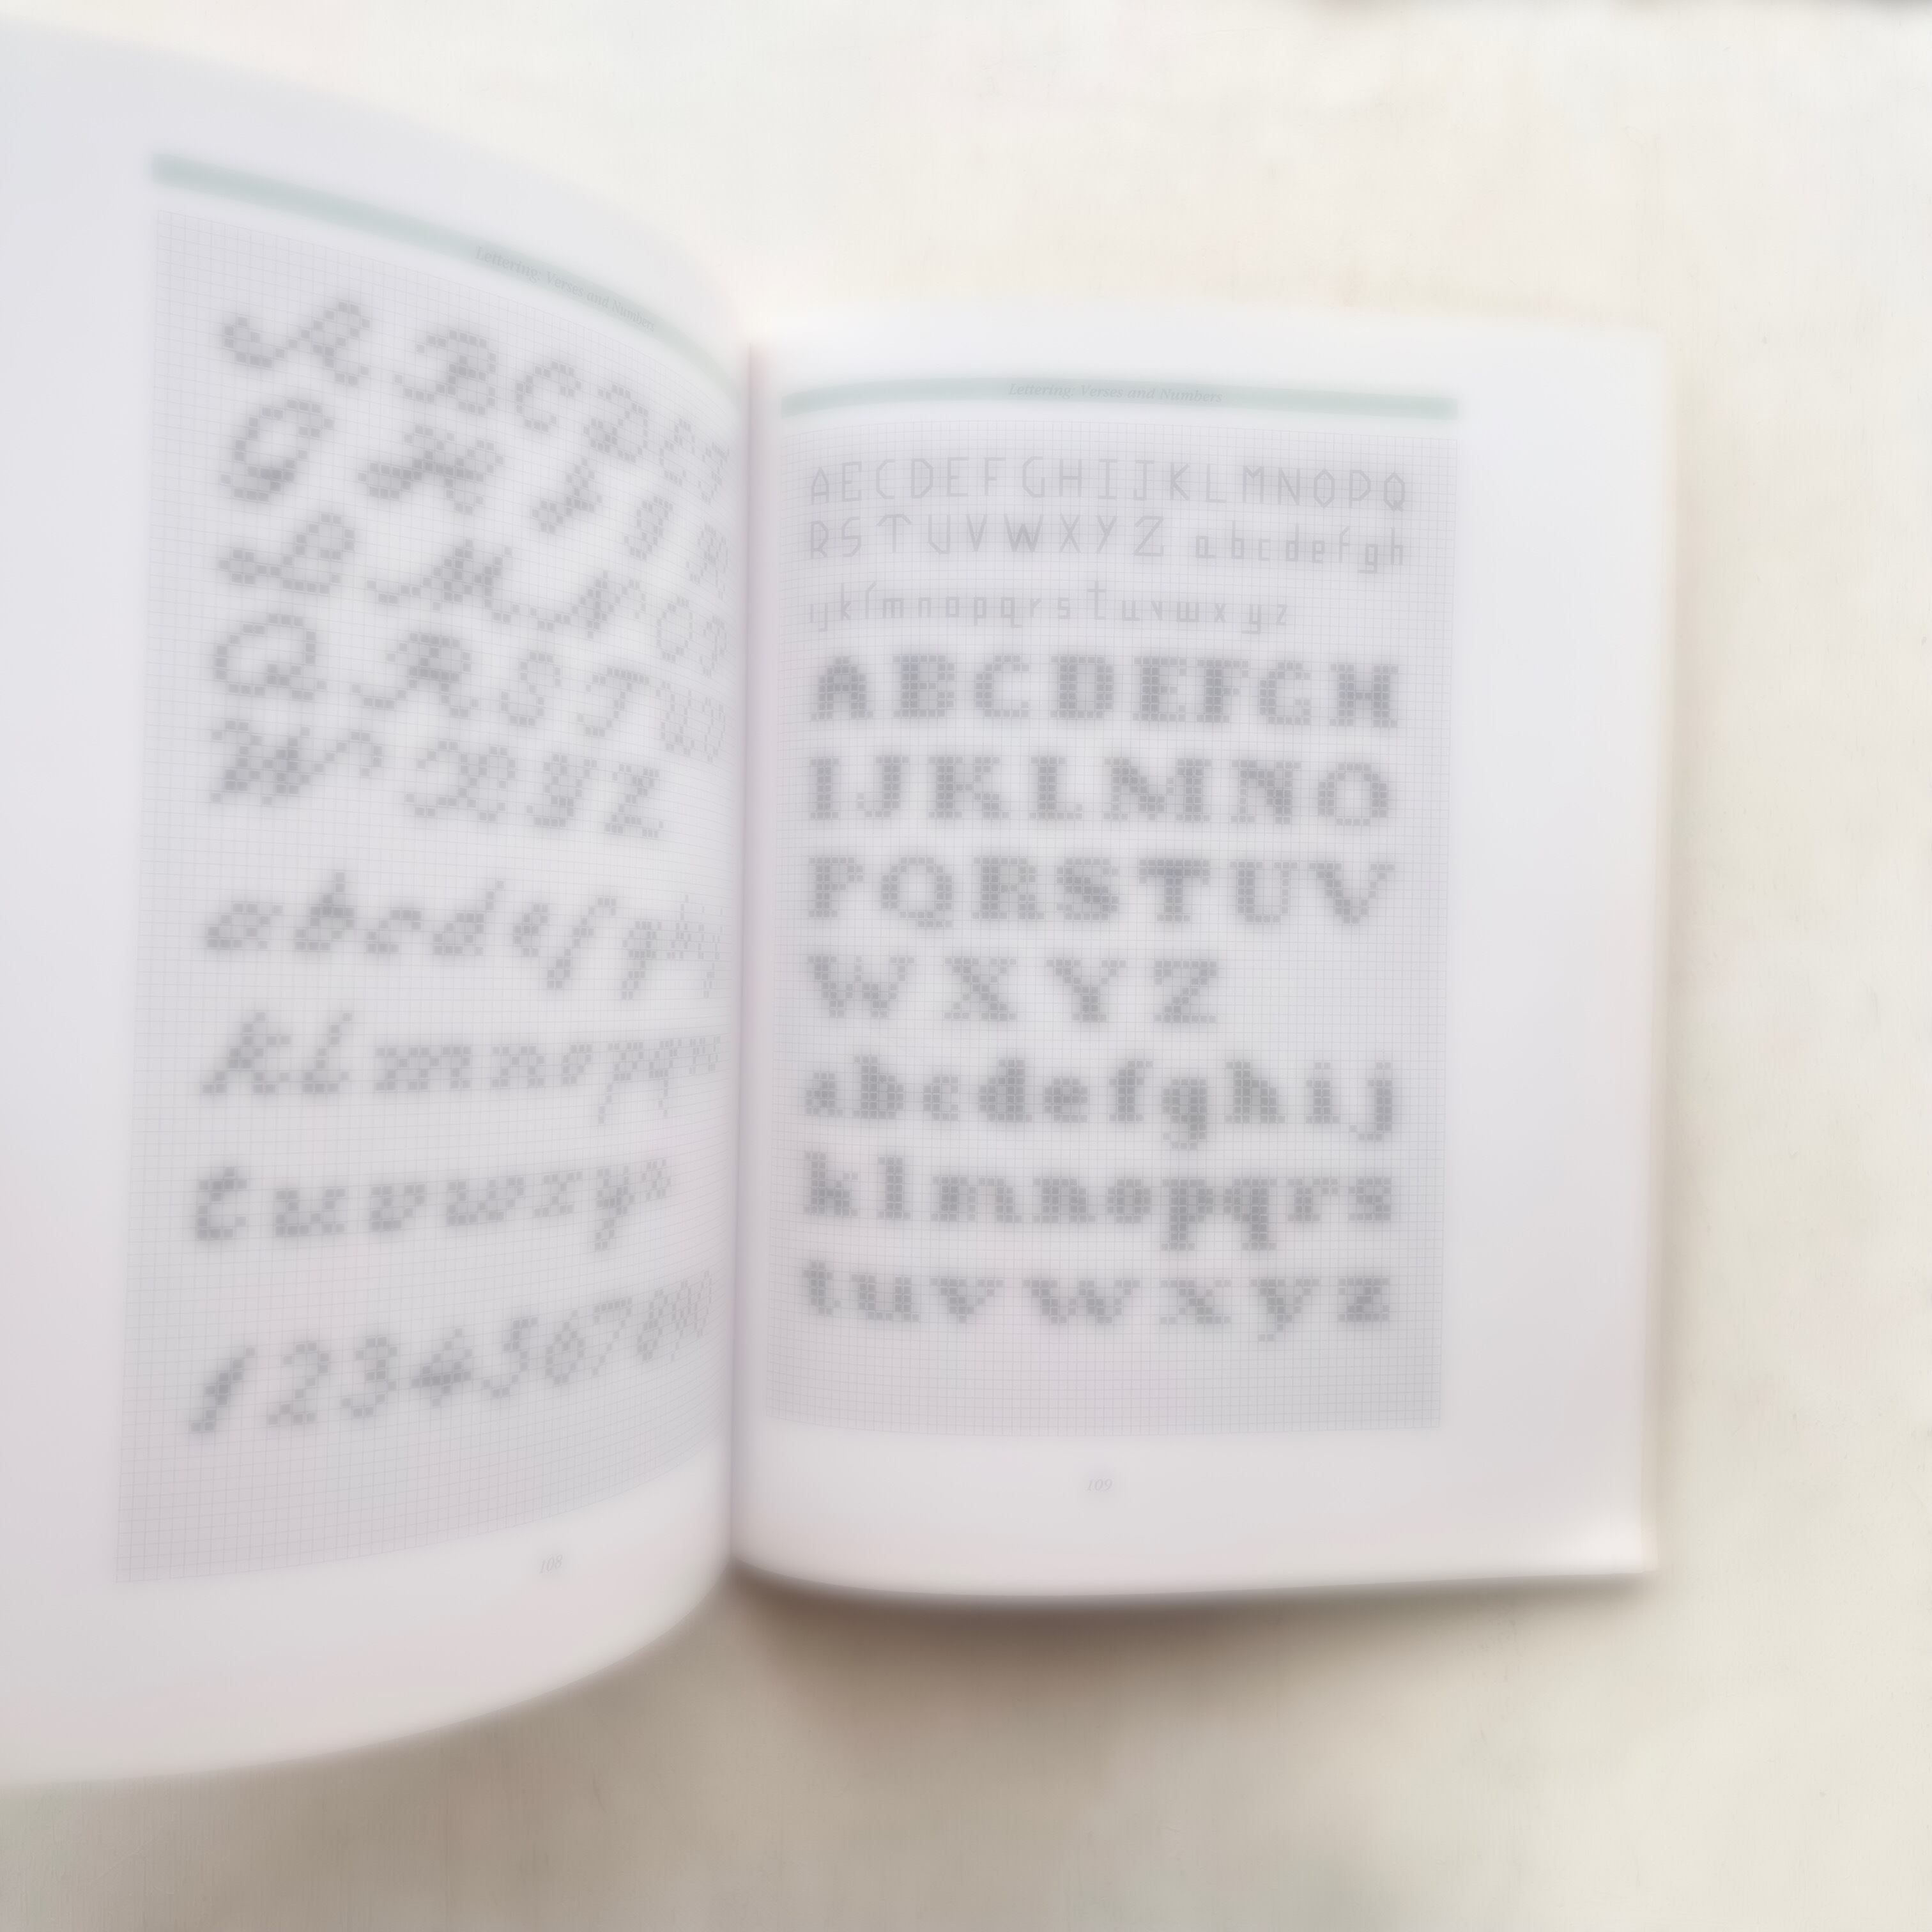 Lettering, Verses and Numbers
A B C D E F
G H I J K
L M N O P
Q R S T U V
W X Y Z
a b c d e f g h i j
k l m n o p q r s
t u v w x y z
1 2 3 4 5 6 7 8 9 0
108
Lettering, Verses and Numbers
A E C D E F G H I J K L M N O P Q
R S T U V W X Y Z a b c d e f g h
i j k l m n o p q r s t u v w x y z
A B C D E F G H
I J K L M N O
P Q R S T U V
W X Y Z
a b c d e f g h i j
k l m n o p q r s
t u v w x y z
109